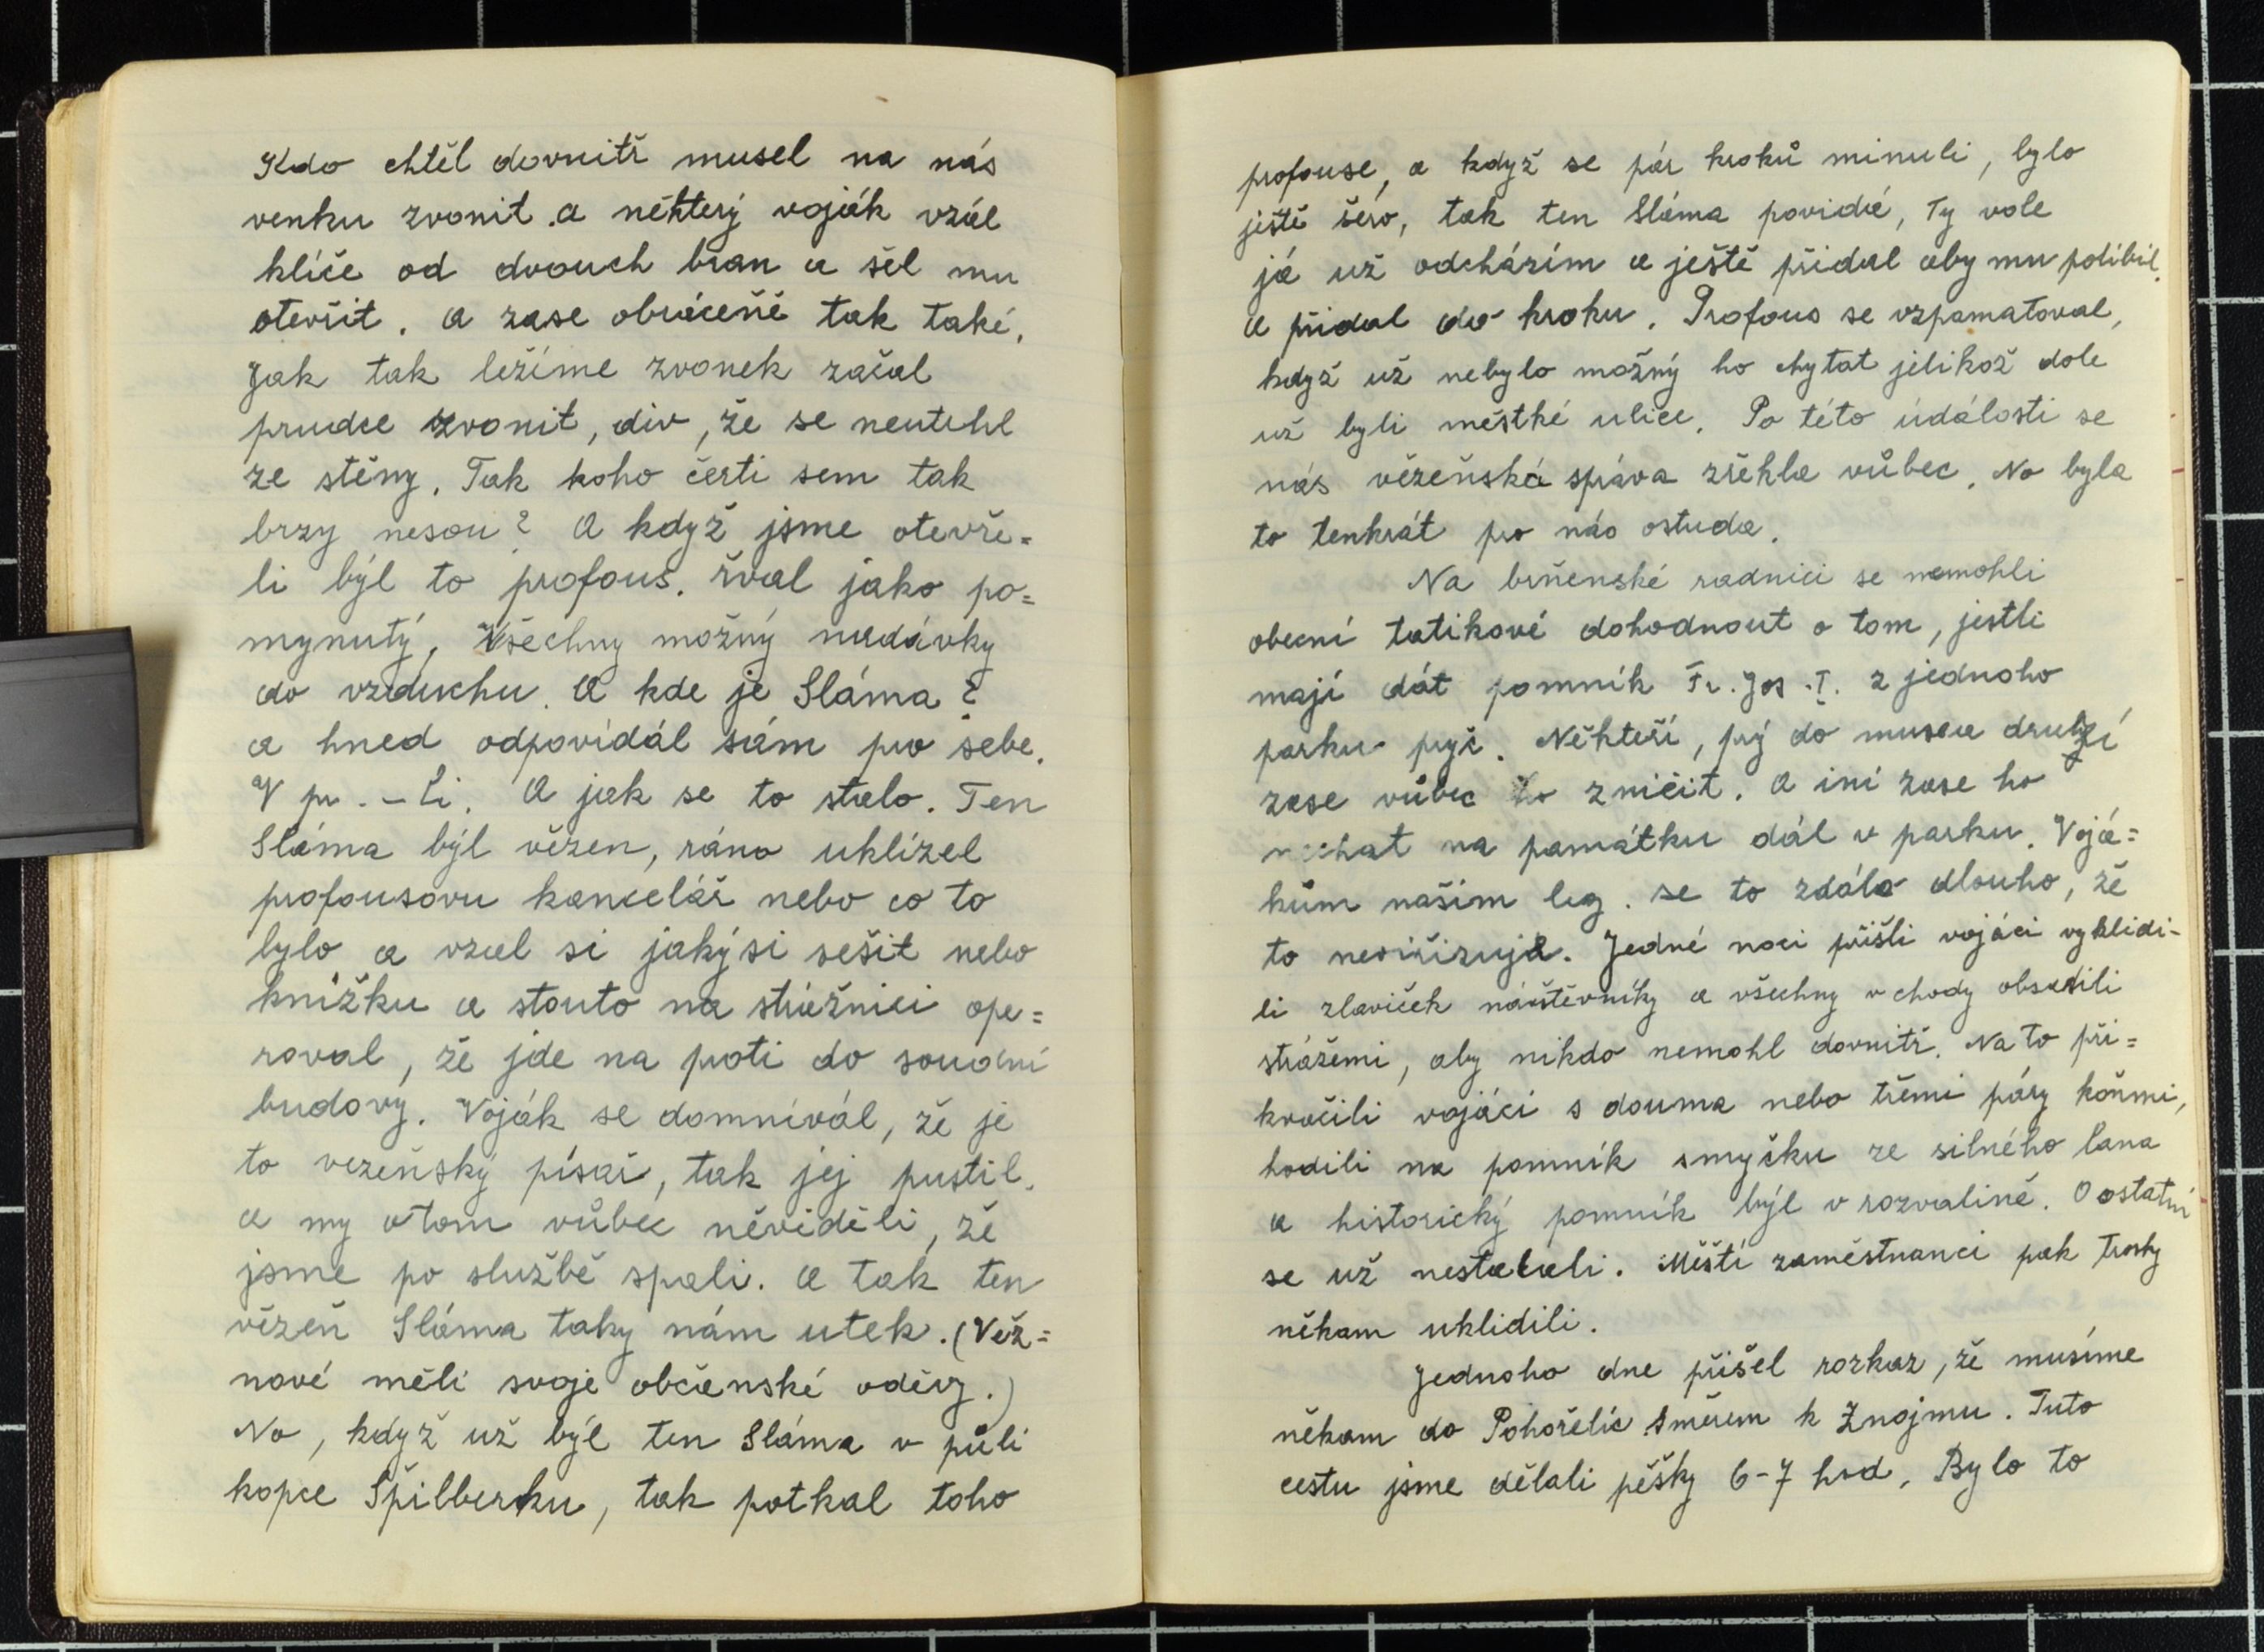 Kdo chtěl dovnitř musel na nás
venku zvonit a některý voják vzál
klíče od dvouch bran a šel mu
otevřit. a zase obráceně tak také.
Jak tak ležíme zvonek začal
prudce zvonit, div, že se neutrhl
ze stěny. Tak koho čerti sem tak
brzy nesou? A když jsme otevře=
li býl to profous. řval jako po=
mynutý, Všechny možný nadávky
do vzduchu. A kde je Sláma?
a hned odpovídál sám pro sebe.
V pr. - li. A jak se to stalo. Ten
Sláma býl vězen, ráno uklízel
profousovu kancelář nebo co to
bylo a vzal si jakýsi sešit nebo
knížku a stouto na strážnici ope=
roval, že jde na proti do soudní
budovy. Voják se domnívál, že je
to vezeňský písař, tak jej pustil.
a my o tom vůbec něviděli, že
jsme po službě spali. A tak ten
vězeň Sláma taky nám utek. (Vež=
nové měli svoje občanské oděvy.)
No, když už býl ten Sláma v půli
kopce Špilberku, tak potkal toho
profouse, a když se pár kroků minuli, bylo
ještě šero, tak ten Sláma povidá, Ty vole
já už odcházím a ještě přidal aby mu políbil.
a přidal do kroku. Profous se vzpamatoval,
když už nebylo možný ho chytat jelikož dole
už byli městké ulice. Po této údálosti se
nás vězeňská správa zřěkla vůbec. No byla
to tenkrát pro nás ostuda.
Na brňenské radnici se nemohli
obecní tatikové dohodnout o tom, jestli
mají dát pomník Fr. Jos. I. z jednoho
parku pryč. Někteří, prý do musea druzí
zase vůbec ho zničit. A iní zase ho
nechat na památku dál v parku. Vojá=
kům našim leg. se to zdálo dlouho, že
to nevířizuja. Jedné noci přišli vojáci vyklidi-
li zlaviček náštěvníky a všechny vchody obsadili
strážemi, aby nikdo nemohl dovnitř. Na to při=
kročili vojáci s douma nebo třemi páry kóňmi,
hodili na pomník smyčku ze silného lana
a historický pomník býl v rozvalině. O ostatní
se už nestarali. Měští zaměstnanci pak trosky
někam uklidili.
Jednoho dne přišel rozkaz, že musíme
někam do Pohořelic směrem k Znojmu. Tuto
cestu jsme dělali pěšky 6-7 hod. Bylo to